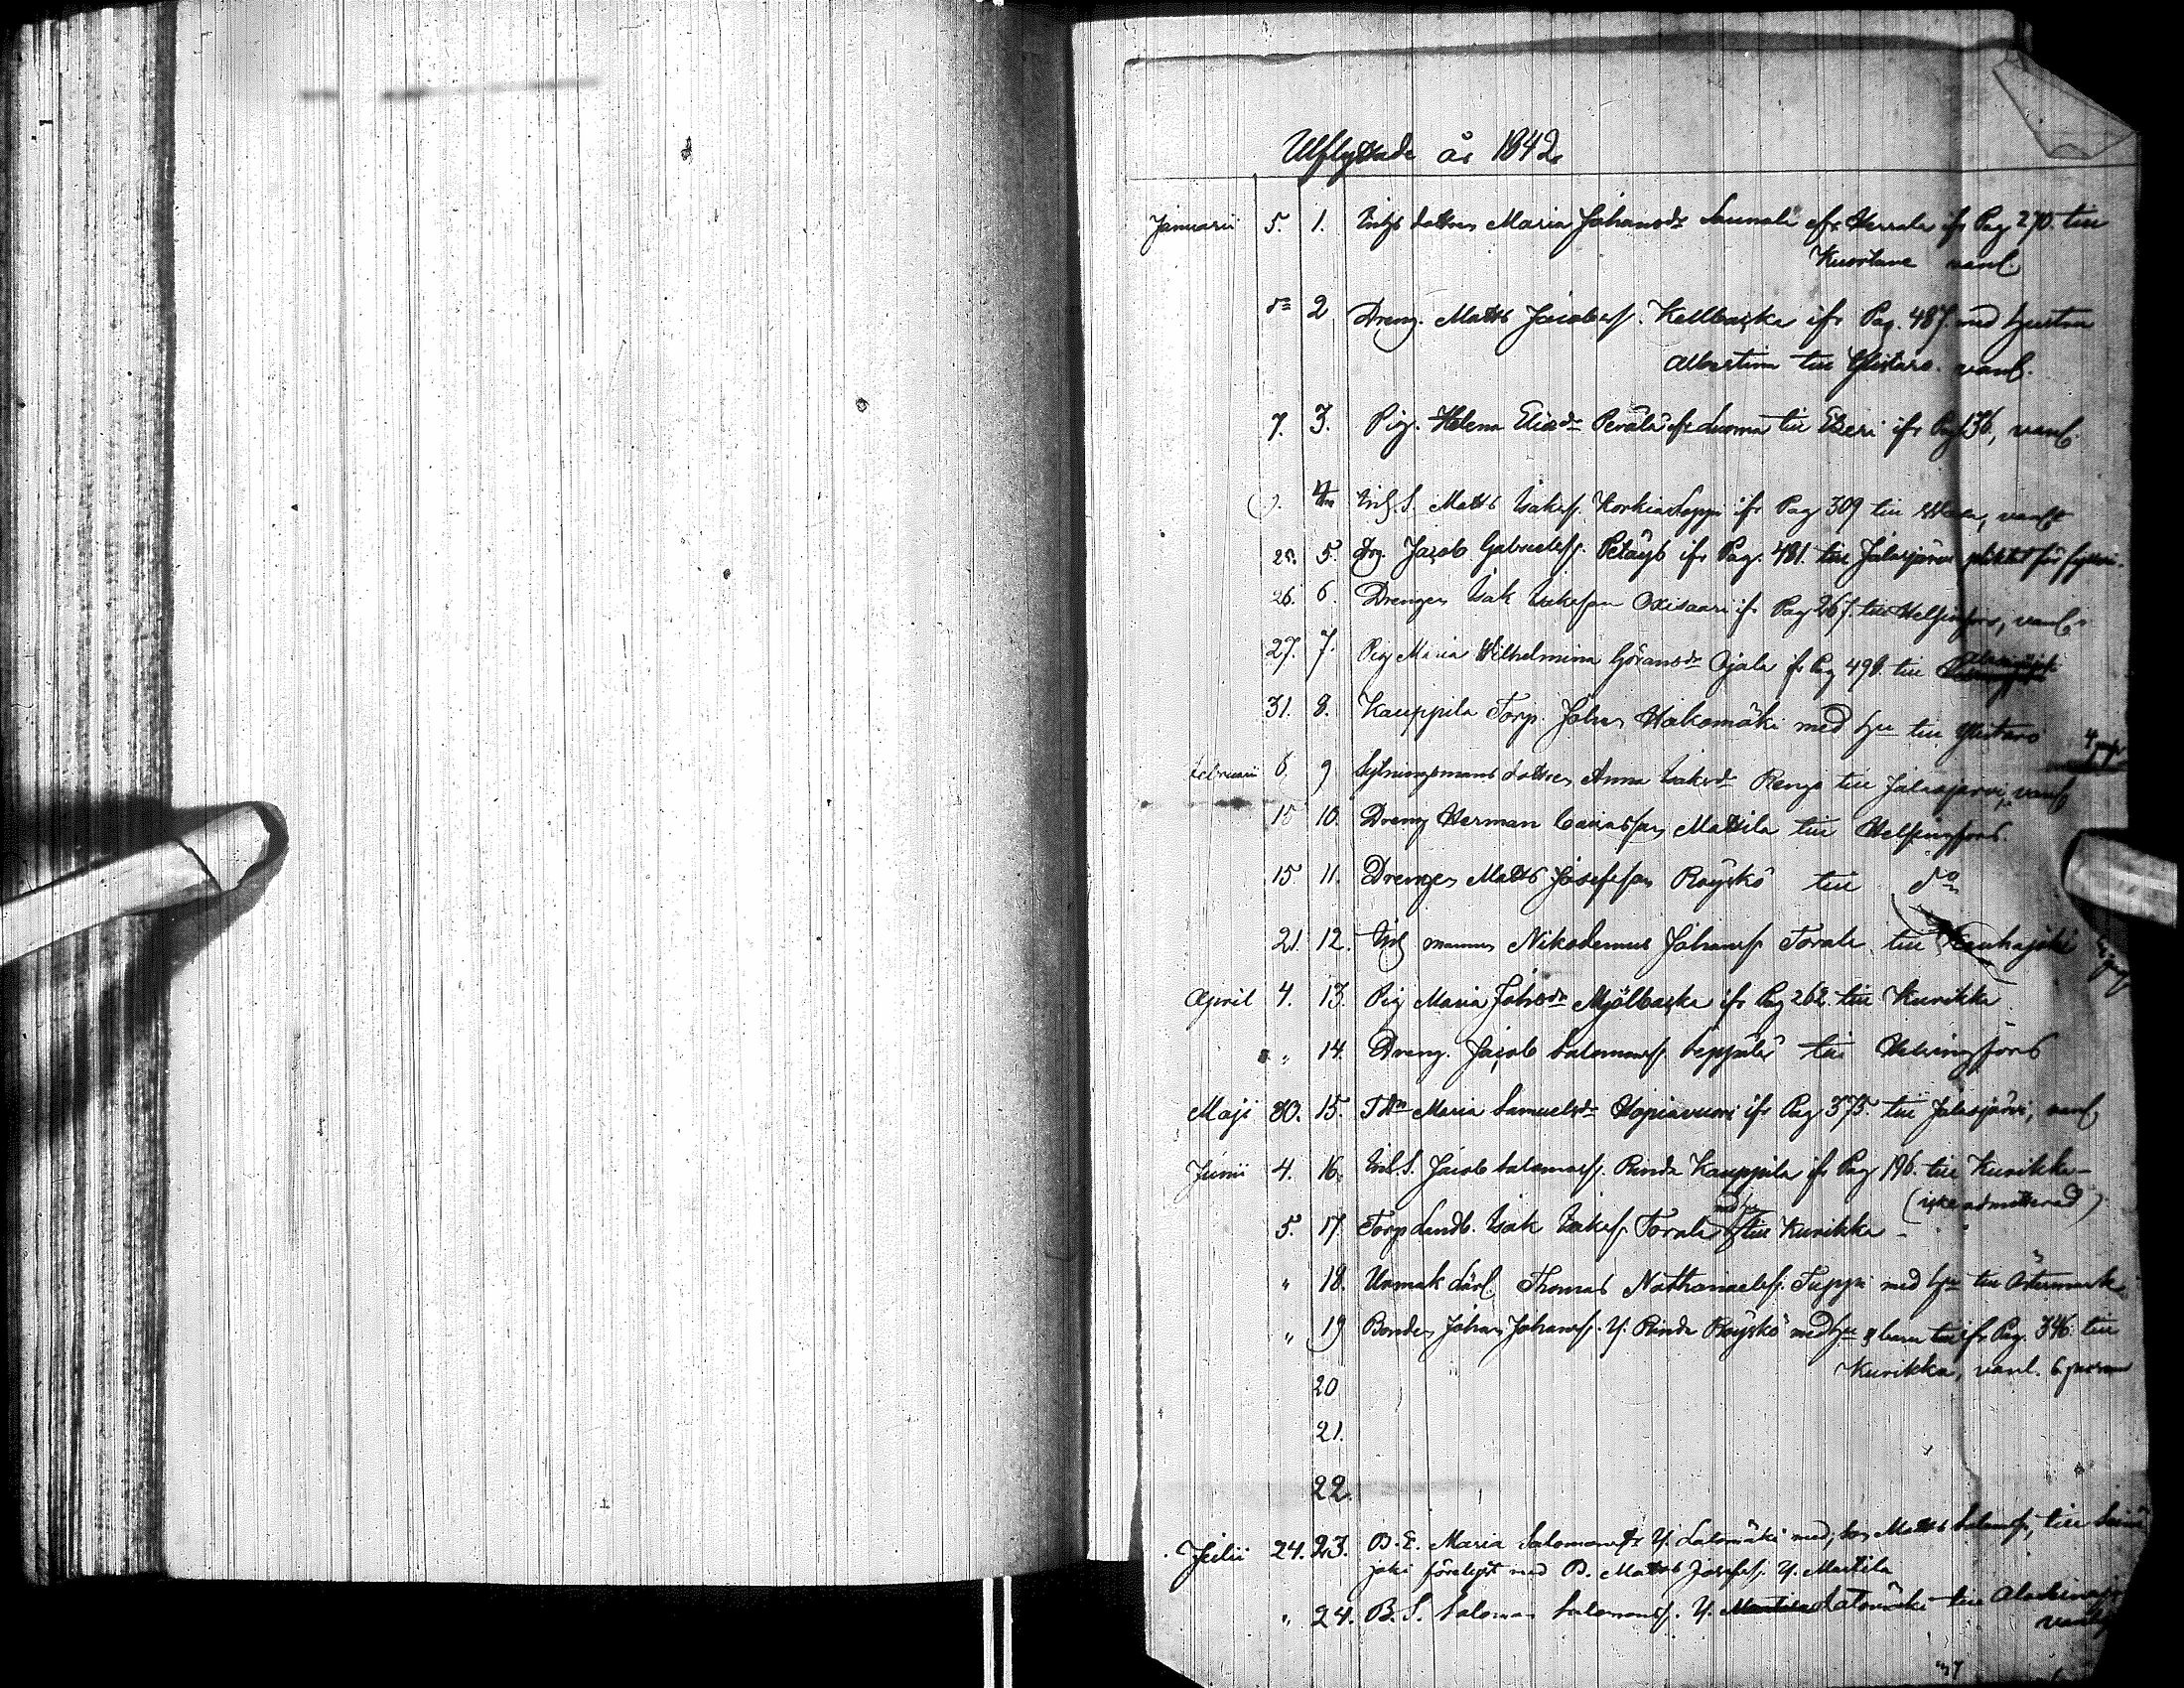 Utflyttade år 1842
Januarii 5. 1. Inhs dottren Maria Johansdr Saunala efr Herrala ifr Pag 270 till
Kuortane vanl.
do 2 Dreng. Matts Jacobsf. Kellbacka ifr Pag. 487 med hustru
Albertina till Ylistaro. vanl.
7. 3. Pig. Helena Eliedr Perälä efr Luoma till Etseri ifr Pag 136, vanl.
4 Inh S. Matts Isaksf. Korkiastoppi ifr Pag 309 till Wasa, vanl
25. 5. Drg. Jacob Gabrielsf. Petäys ifr Pag. 481. till Jalasjärvi
26. 6. Drengen Isak Isaksson Oxisaari ifr Pag 267. till Helsingfors, vanl.
27. 7. Pig Maria Wilhelmina Göransdr Ojala fr Pag 498. till
31. 8. Kauppila Torp. Johan Hakomäki med hu till Ylistaro
Februari 6. 9 Sytningsmans dottren Anna Isaksdr Rengo till Jalasjärvi, vanl
15 10. Dreng Herman Mattila till Helsingfors.
15 11. Drengen Matts Josefsson Röyskö till do
21. 12. Inh mannen Nikodemus Johansf Torala till Kauhajoki
April 4. 13. Pig Maria Johsdr Mjölbacka ifr Pag 262. till Kurikka
" 14. Dreng. Jacob Salomonsf. Seppälä till Helsingfors
Maji 30. 15. Maria Samuelsdr Hopiavuori ifr Pag 375. till Jalasjärvi, vanl
Junii 4. 16. Inh S. Jacob Salomonsf. Rinda Kauppila ifr Pag 196. till Kurikka -
(icke admitterad)
5. 17. Torp Landb. Isak Isaksf Torala med hu till Kurikka -
" 18. Unmak därl. Thomas Nathanaelsf. Tuppi med hu till Östermark
" 19 Bonden Johan Johansf. Y. Rinda Röyskö med hu & barn till ifr Pag. 346 till
Kurikka, vanl. 6 personer
20
21.
22.
Julii 24. 23. B. E. Maria Salomonsdr Y. Latomäki med, son Matts Salomsf, till Seinä
joki förelyst med B. Matts Josefsf. Y. Martila
" 24. B. S. Salomon Salomonsf. Y. Martila Latomäki till
vanl